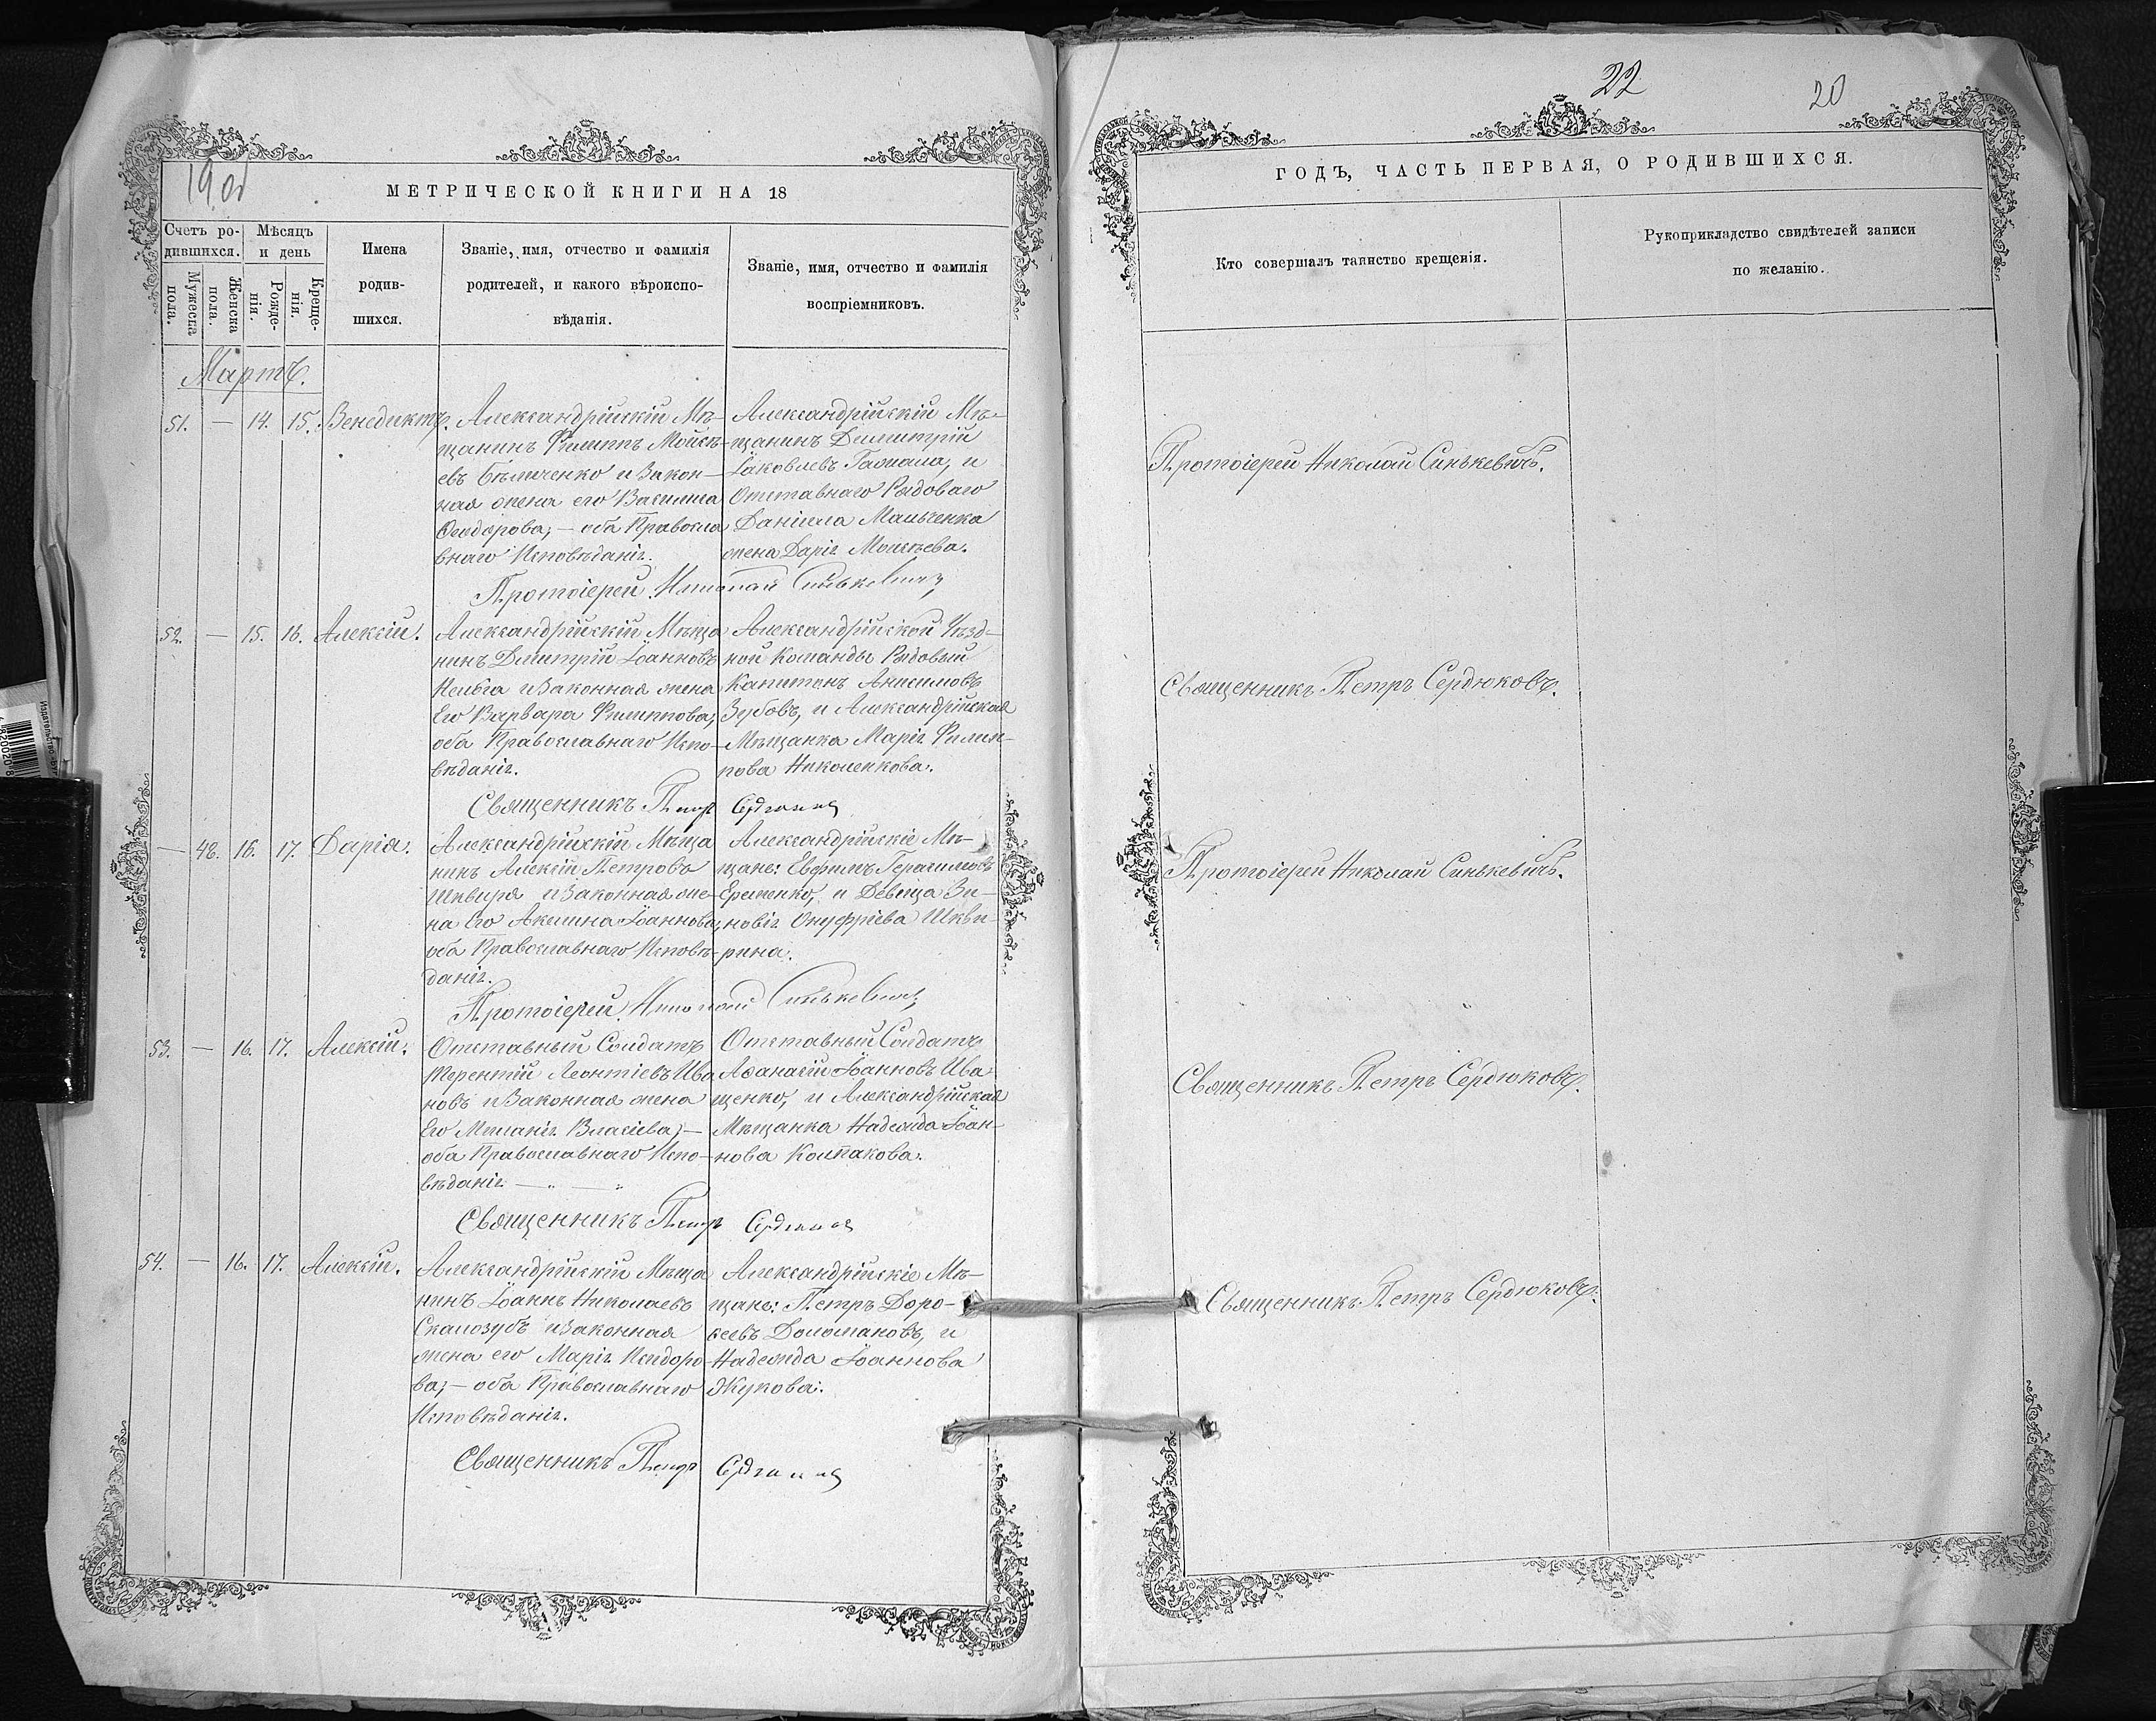 22
20
МЕТРИЧЕСКОЙ КНИГИ НА 18
Счетъ ро-
дившихся.
Мужеска
пола.
Женска
пола.
Мѣсяцъ
и день
Рожде-
нія.
Креще-
нія.
Имена
родив-
шихся.
Званіе, имя, отчество и фамилія
родителей, и какого вѣроиспо-
вѣданія.
Званіе, имя, отчество и фамилія
воспріемниковъ.
Мартъ.
51. — 14. 15. Венедиктъ.
Александрійскій Мѣ-
щанинъ Филиппъ Моисѣ-
евъ и Закон-
ная жена его Василиса
Ѳеодорова; — оба Правосла
внаго Исповѣданія.
Александрійскій Мѣ-
щанинъ Димитрій
Іаковлевъ и
Отставнаго Рядоваго
Даніила
жена Дарія Моисѣева.
Протоіерей Николай Синькевичъ
52. — 15. 16. Алексій.
Александрійскій Мѣща
нинъ Димитрій Іоанновъ
и Законная жена
Его Варвара Филиппова,
оба Православнаго Испо-
вѣданія.
Александрійской Уѣзд-
ной Команды Рядовый
Капитонъ Анисимовъ
Зубовъ, и Александрійская
Мѣщанка Марія Филип-
пова Николенкова.
Священникъ Петръ Сердюковъ
— 48. 16. 17. Дарія.
Александрійскій Мѣща
нинъ Алексій Петровъ
Шквыря и Законная же-
на Его Акилина Іоаннова,
оба Православнаго Исповѣ-
данія.
Александрійскіе Мѣ-
щане: Евфимъ Герасимовъ
Еременко, и Дѣвица Зи-
новія Онуфріева Шкви-
рина.
Протоіерей Николай Синькевичъ
53. — 16. 17. Алексій.
Отставный Солдатъ
Терентій Леонтіевъ Ива
новъ и Законная жена
Его Меланія Власіева; —
оба Православнаго Испо-
вѣданія — „ — „
Отставный Солдатъ
Аѳанасій Іоанновъ Ива
щенко, и Александрійская
Мѣщанка Надежда Іоан-
нова Колпакова.
Священникъ Петръ Сердюковъ
54. — 16. 17. Алексій.
Александрійскій Мѣща
нинъ Іоаннъ Николаевъ
Скалозубъ и Законная
жена его Марія Исидоро-
ва; — оба Православнаго
Исповѣданія.
Александрійскіе Мѣ-
щане: Петръ Доро-
ѳеевъ Доломановъ, и
Надежда Іоаннова
Жукова.
Священникъ Петръ Сердюковъ
ГОДЪ, ЧАСТЬ ПЕРВАЯ, О РОДИВШИХСЯ.
Кто совершалъ таинство крещенія.
Рукоприкладство свидѣтелей записи
по желанію.
Протоіерей Николай Синькевичъ.
Священникъ Петръ Сердюковъ.
Протоіерей Николай Синькевичъ.
Священникъ Петръ Сердюковъ.
Священникъ Петръ Сердюковъ.